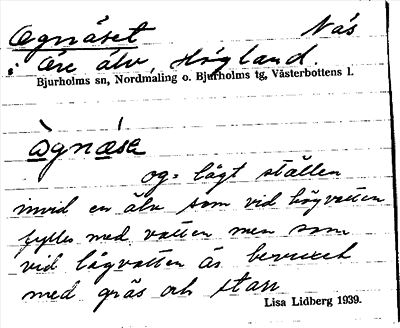 Ognäset Näs
i Öre älv, Högland.
Bjurholms sn, Nordmaling o. Bjurholms tg, Västerbottens l.
ògnæsə
og = lågt ställen
invid en älv som vid högvatten
fylles med vatten men som
vid lågvatten är bevuxet
med gräs och starr
Lisa Lidberg 1939.